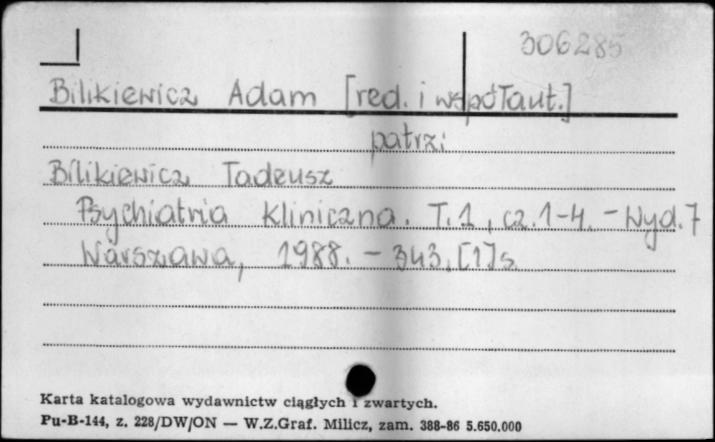 306285
Bilikiewicz Adam [red. i współaut.]
patrz:
Bilikiewicz Tadeusz
Psychiatria kliniczna. T.1, cz.1-4. - Wyd.7
Warszawa, 1988. - 343, [1]s.
Karta katalogowa wydawnictw ciągłych i zwartych.
Pu-B-144, z. 228/DW/ON — W.Z.Graf. Milicz, zam. 388-86 5.650.000